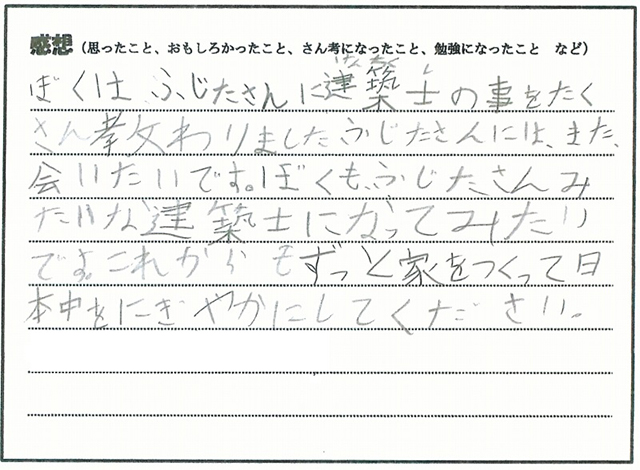 感想（思ったこと、おもしろかったこと、さん考になったこと、勉強になったこと　など）
ぼくは、ふじたさんに建築士の事をたく
さん孝文わりました。ふじたさんには、また、
会いたいです。ぼくも、ふじたさんみ
たいな建築士になってみたい
です。これからもずっと家をつくって日
本中をにぎやかにしてください。